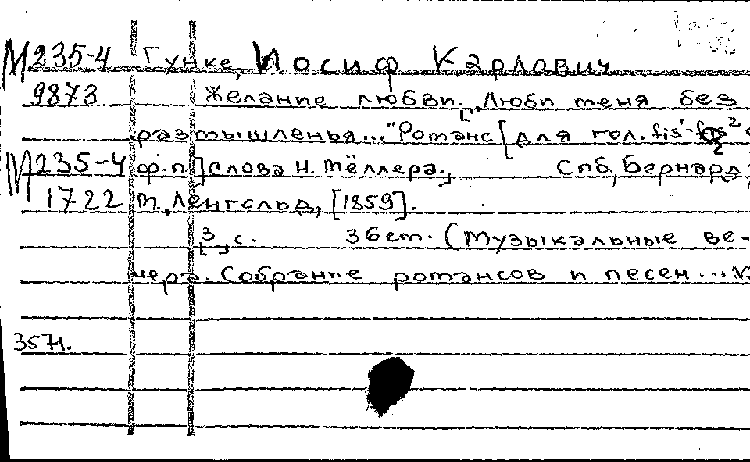 М235-4 Гунке, Иосиф Карлович
9873 Желание любви. „Люби меня без
размышленья..." Романс [для гол. fis'-
М235-4 ф.п.] слова Н. Мёллера. Спб, Бернард,
1722 м. Ленгольд, [1859].
3 с. 36см. (Музыкальные ве-
чера. Собрание романсов и песен...
3571.